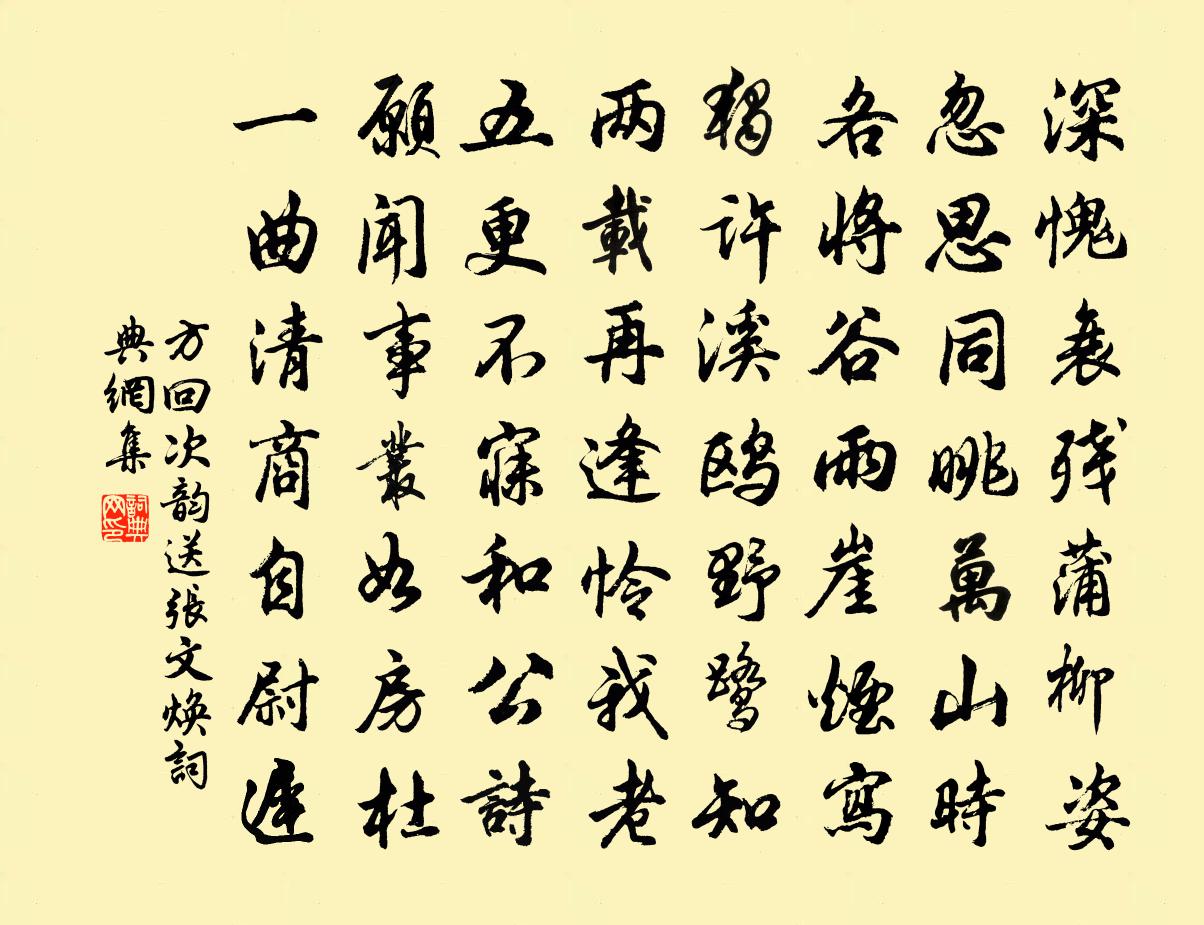 深愧衰残蒲柳姿
忽思同眺萬山時
各将谷雨崖煙寫
独許溪鸥野鹭知
两載再逢怜我老
五更不寐和公詩
願闻事業如房杜
一曲清商自尉遲
方回次韵送張文焕詞
典網集
詞典网印